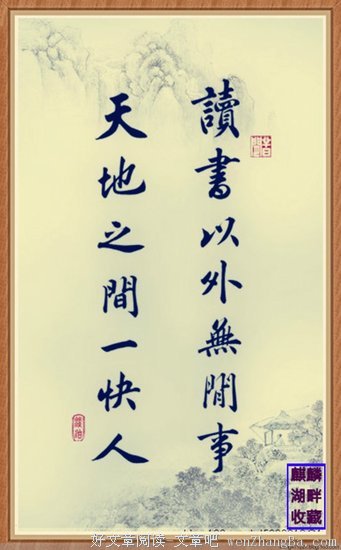 讀書以外無閒事
天地之間一快人
麒麟
湖畔
收藏
好文章阅读-文章吧 wenZhangBa.com